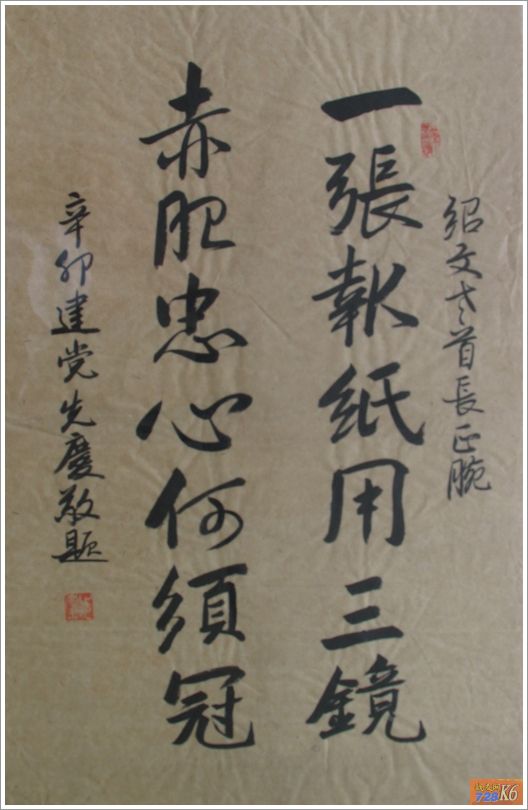 绍文老首長正腕
一張報紙用三鏡
赤胆忠心何須冠
辛卯建党先慶敬題
728 K6